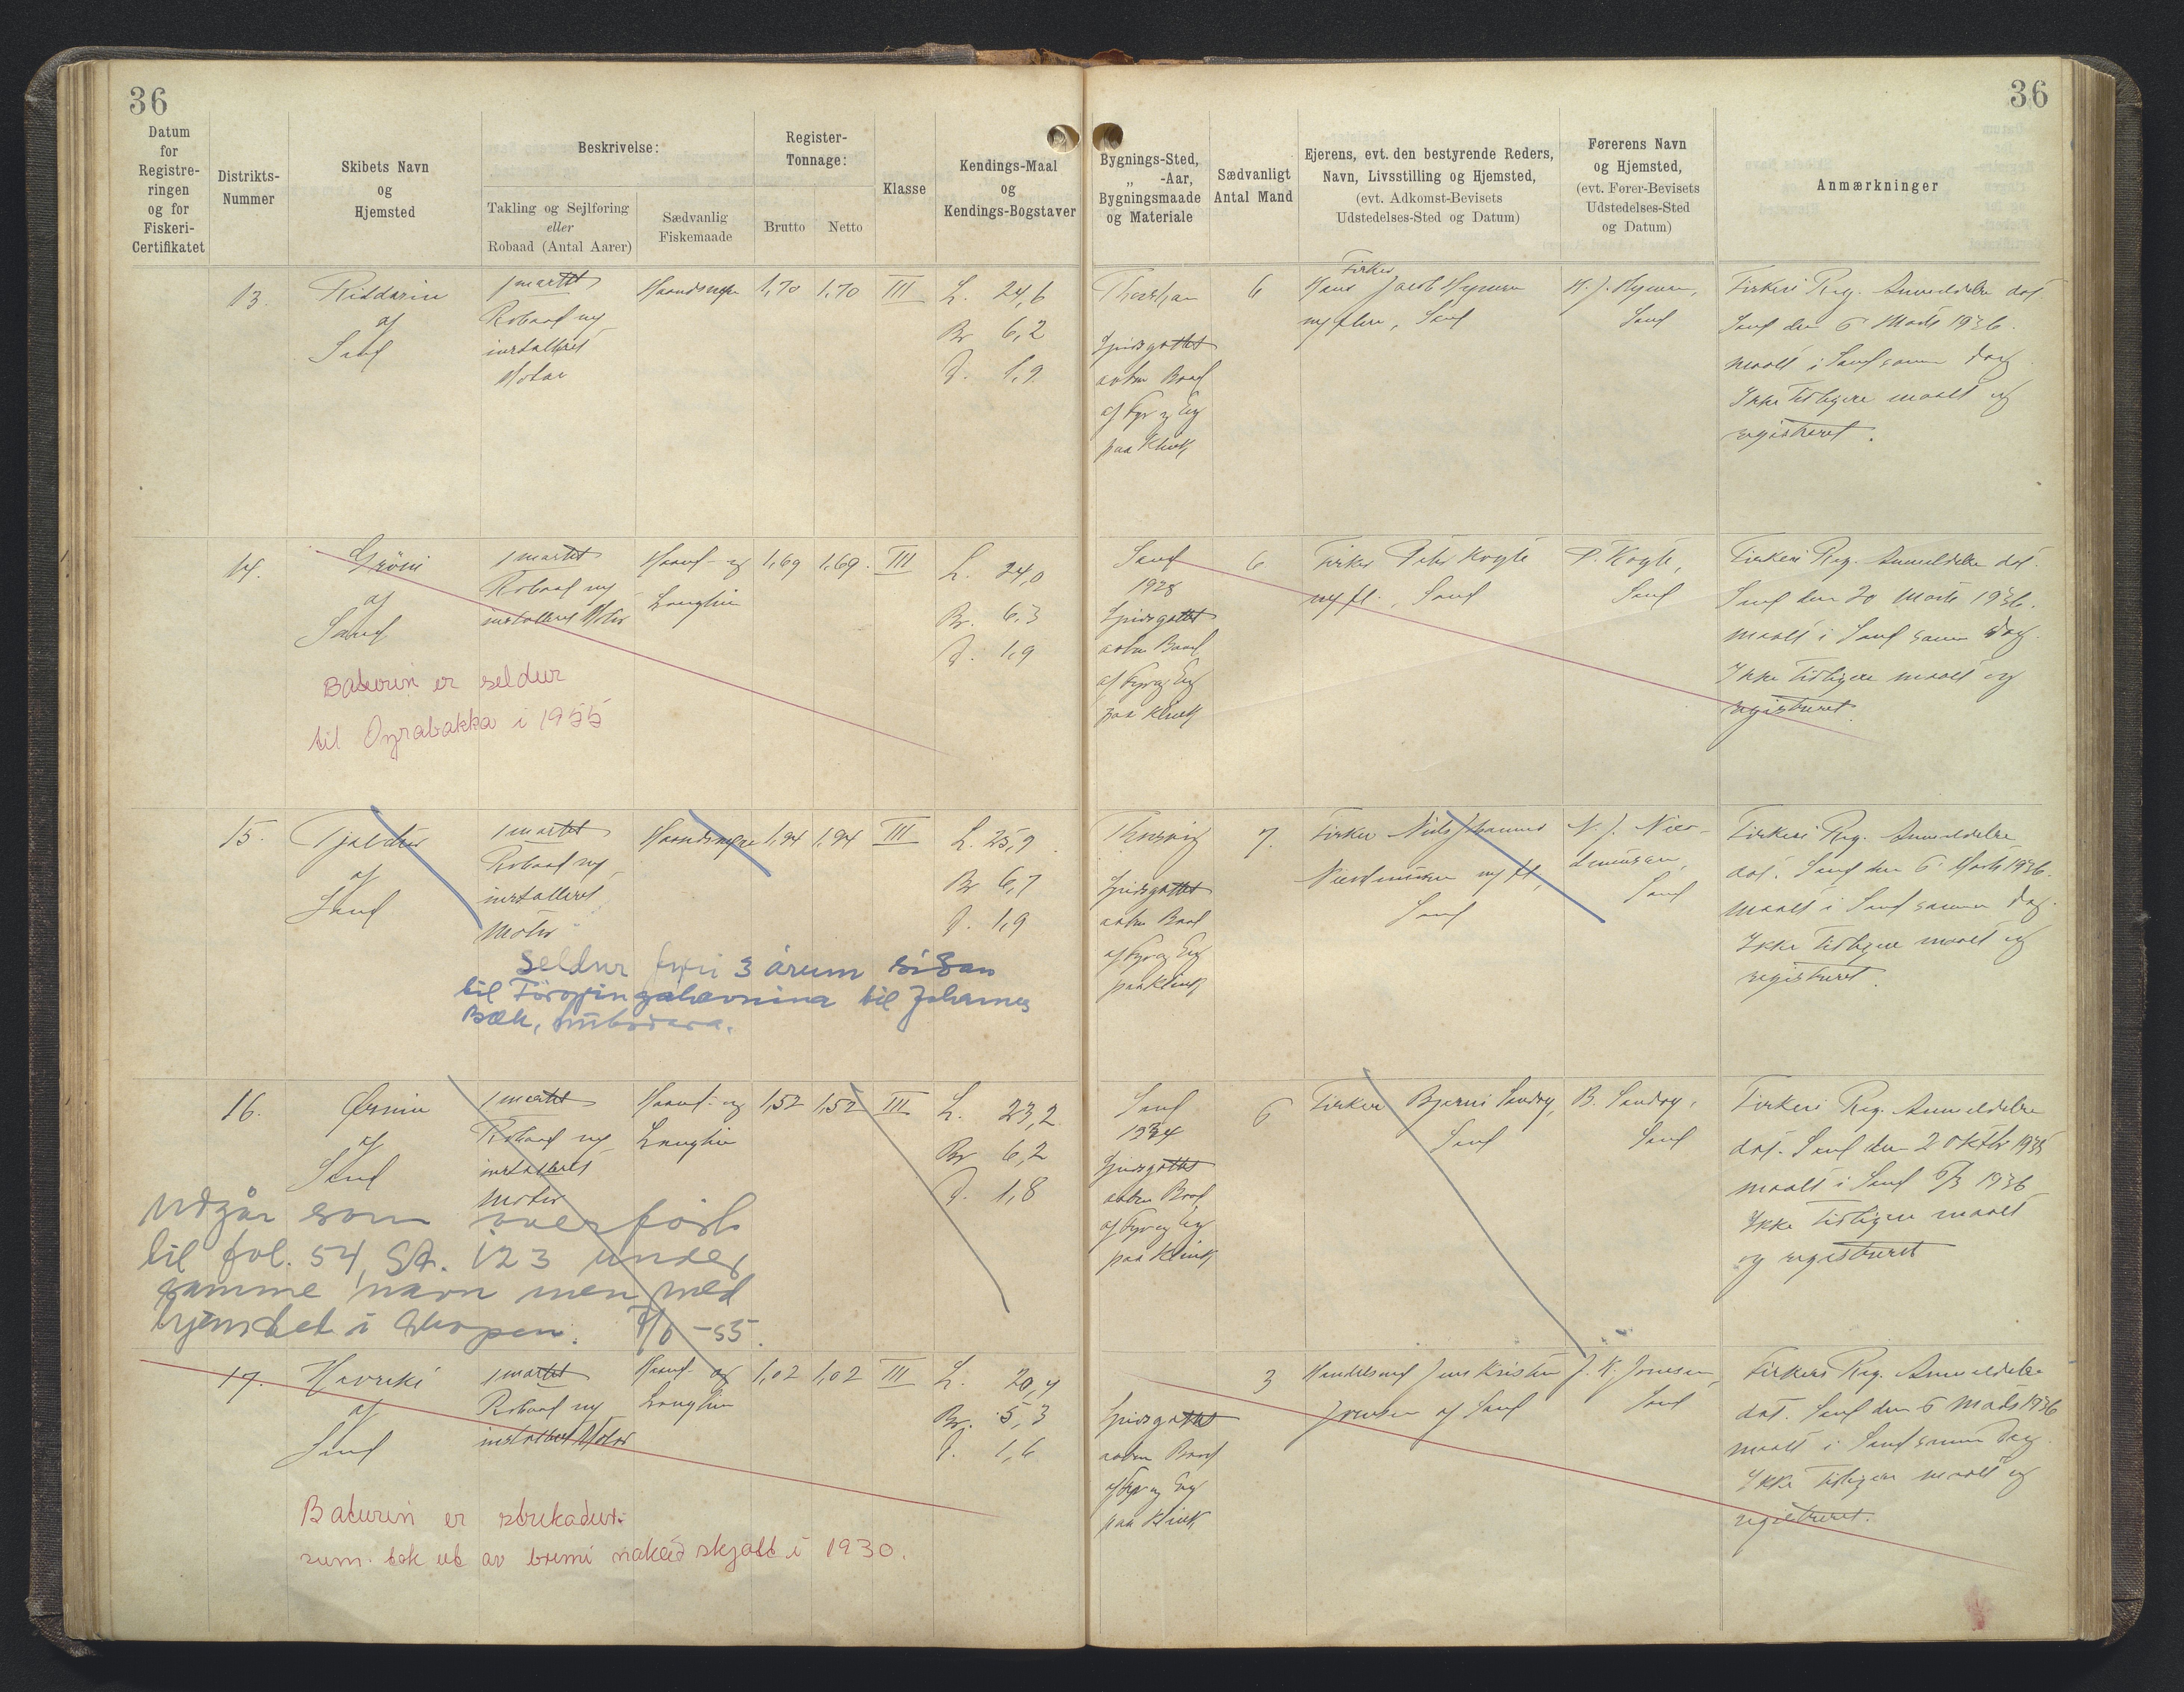 36
36
Datum
for
Registre-
ringen
og for
Fiskeri-
Certifikatet
Distrikts-
Nummer
Skibets Navn
og
Hjemsted
Beskrivelse:
Takling og Sejlføring
eller
Robaad (Antal Aarer)
Sædvanlig
Fiskemaade
Register-
Tonnage:
Brutto
Netto
Klasse
Kendings-Maal
og
Kendings-Bogstaver
Bygnings-Sted,
„ -Aar,
Bygningsmaade
og Materiale
Sædvanligt
Antal Mand
Ejerens, evt. den bestyrende Reders,
Navn, Livsstilling og Hjemsted,
(evt. Adkomst-Bevisets
Udstedelses-Sted og Datum)
Førerens Navn
og Hjemsted,
(evt. Fører-Bevisets
Udstedelses-Sted
og Datum)
Anmærkninger
13.
Riddarin
af
Sand
1 mastet
Robaad m/
installeret
Motor
1,70
1,70
III
L. 24,6
Br 6,2
D. 1,9
Spidsgattet
aaben Baad
af Fyr og Eg
paa Klink
6
Fisker
Hans Jacob
m/ flere, Sand
Sand
Fiskeri Reg. Anmeldelse dat.
Sand den 6 Marts 1936.
maalt i Sand samme Dag.
Ikke tidligere maalt og
registreret.
14.
Gróin
af
Sand
1 mastet
Robaad m/
installeret Motor
Haand- og
Langline
1,69
1,69.
III
L. 24,0
Br. 6,3
D. 1,9
Baturin er seldur
til Oyrabakka i 1955
Sand
1928
Spidsgattet
aaben Baad
af Fyr og Eg
paa Klink
6
Fisker
m/ fl., Sand
Sand
Fiskeri Reg. Anmeldelse dat.
Sand den 20 Marts 1936.
maalt i Sand samme Dag.
Ikke tidligere maalt og
registreret.
15.
Tjaldur
af
Sand
1 mastet
Robaad m/
installeret
Motor
1,94
1,94
III
L. 25,9
Br 6,7
D. 1,9
Seldur fyri 3 árum síðan
til Føroyingahavnina til Johannes
Bæk, .
Spidsgattet
aaben Baad
af Fyr og Eg
paa Klink
7.
Fisker Niels Johannes
m/ fl,
Sand
N. J.
Sand
Fiskeri Reg. Anmeldelse
dat. Sand den 6 Marts 1936.
maalt i Sand samme Dag.
Ikke tidligere maalt og
registreret.
16.
Ørnin
af
Sand
1 mastet
Robaad m/
installeret
Motor
Haand- og
Langline
1,52
1,52
III
L. 23,2
Br 6,2
D. 1,8
Udgår som overført
til fol. 54, SA. 123 under
samme navn men med
hjemsted i Skopun. -55.
Sand
1934
Spidsgattet
aaben Baad
af Fyr og Eg
paa Klink
6
Fisker Bjarni Sandoy,
Sand
B. Sandoy,
Sand
Fiskeri Reg. Anmeldelse
dat. Sand den 2 Oktbr 1935
maalt i Sand 6/3 1936
Ikke tidligere maalt
og registreret
17.
Havreki
af
Sand
1 mastet
Robaad m/
installeret Motor
Haand- og
Langline
1,02
1,02
III
L. 20,4
Br. 5,3
D. 1,6
Baturin er strikadur.
sum. tok ut av
skjott í 1930.
Spidsgattet
aaben Baad
af Fyr og Eg
paa Klink
3
Handelsmd Jens Kristian
Joensen af Sand
J. K. Joensen,
Sand
Fiskeri Reg. Anmeldelse
dat. Sand den 6 Marts 1936
maalt i Sand samme Dag
Ikke tidligere maalt og
registreret.